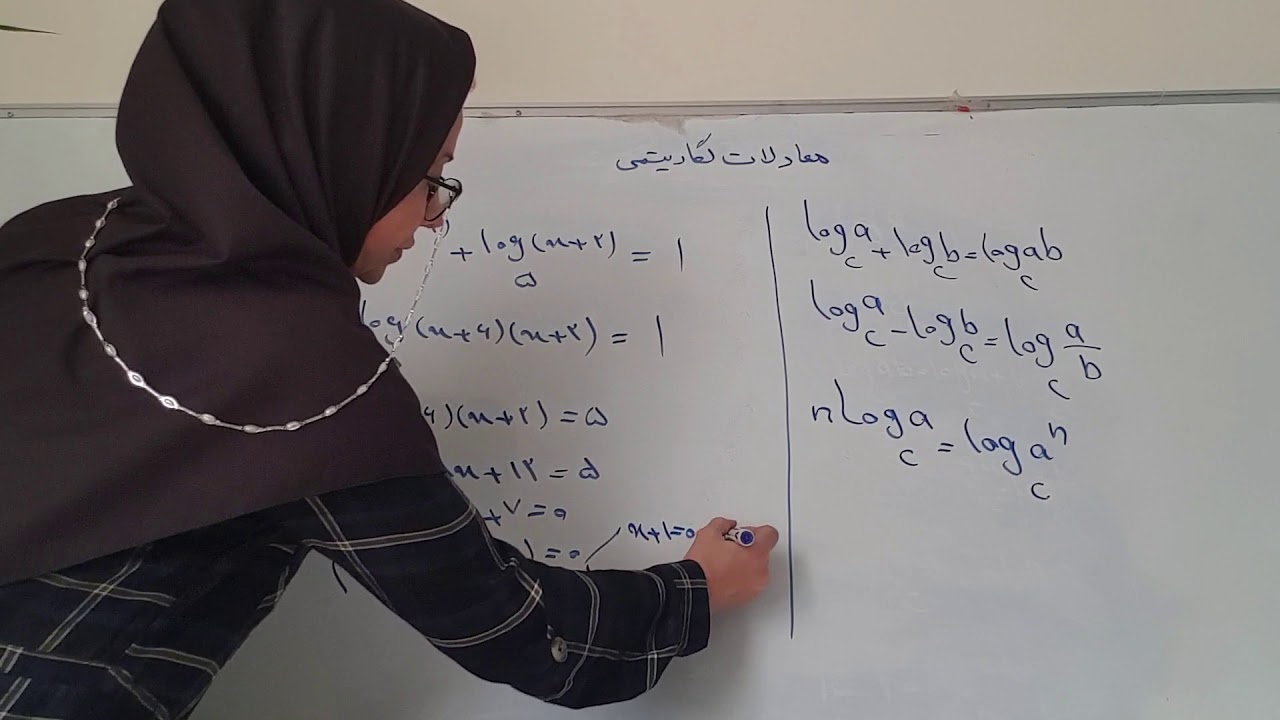 معادلات لگاریتمی
+ log₅(x+۲) = ۱
log(x+۶)(x+۲) = ۱
۶)(x+۲) = ۵
x+۱۲ = ۵
+۷=۰
)=۰ x+۱=۰
log_c a + log_c b = log_c ab
log_c a - log_c b = log_c a/b
n log_c a = log_c aⁿ